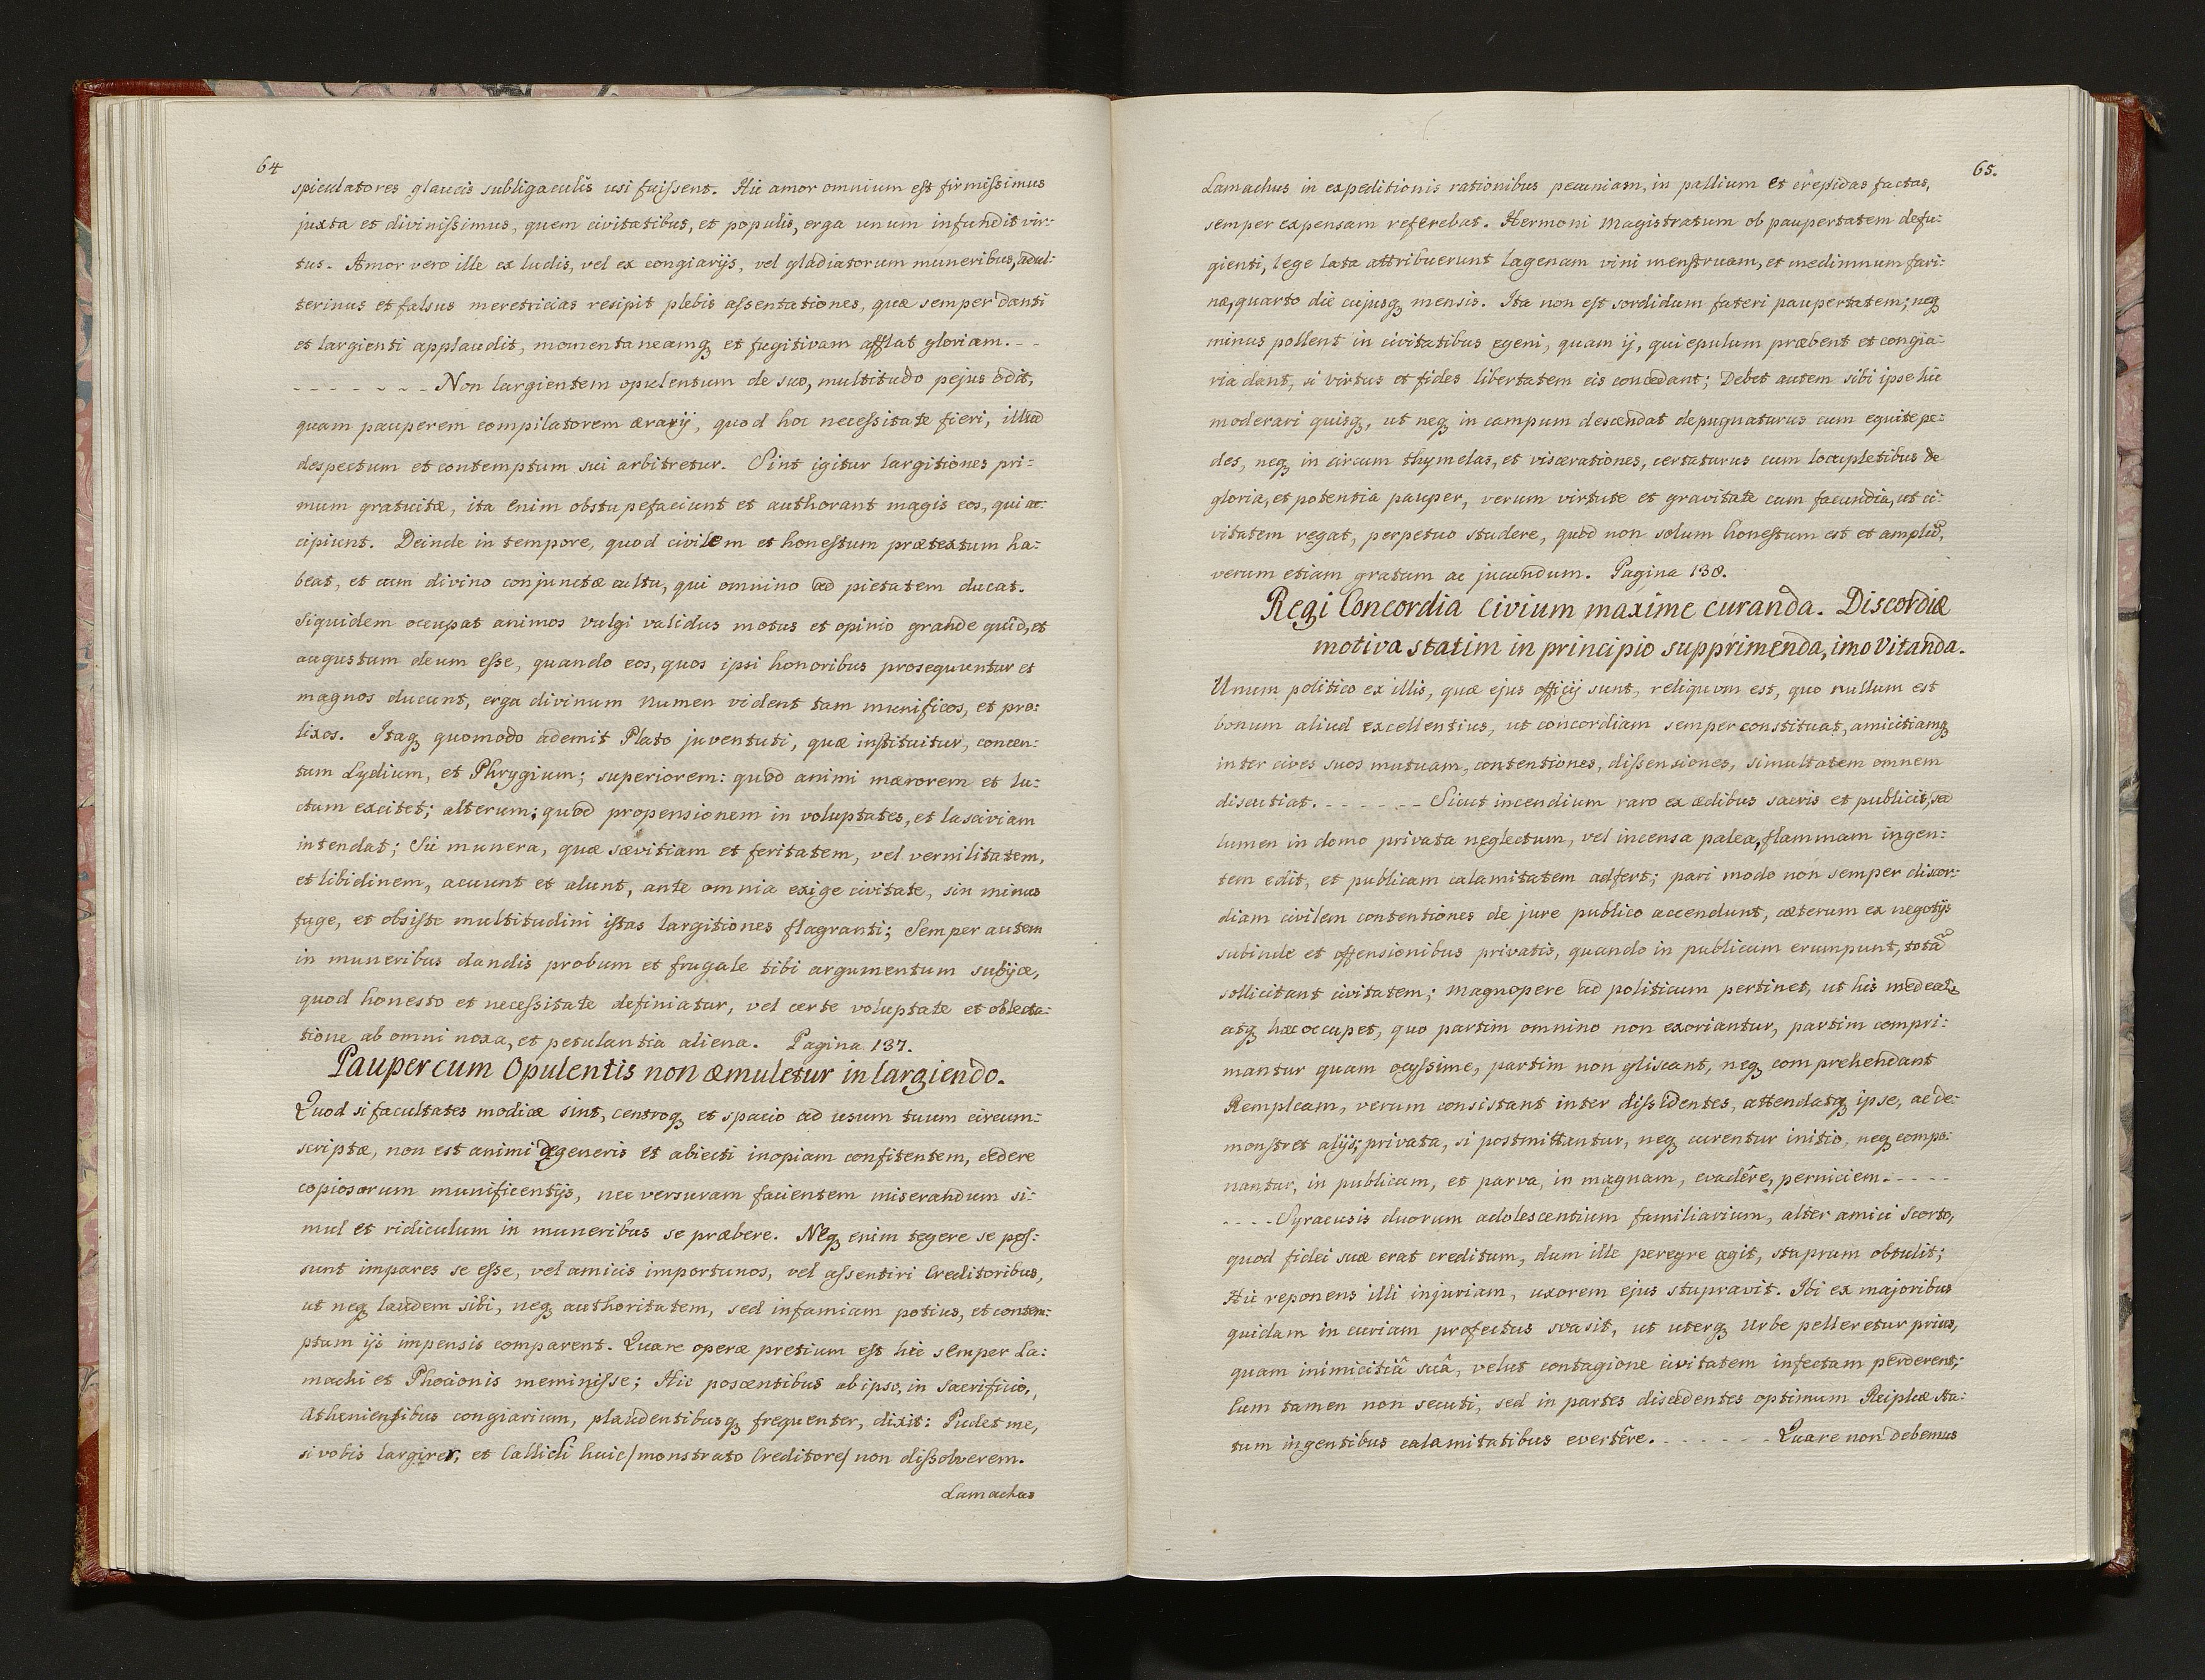 64
spiculatores glaucis subligaculis usi fuissent. Hic amor omnium est firmissimus
juxta et divinissimus, quem civitatibus, et populis, erga unum infundit vir:
tus. Amor vero ille ex ludis, vel ex congiarijs, vel gladiatorum muneribus, adul:
terinus et falsus meretricias recipit plebis assentationes, quæ semper danti
et largienti applaudit, momentaneamq et fugitivam afflat gloriam. - -
- - - - - - - Non largientem opulentum de suo, multitudo pejus odit,
quam pauperem compilatorem ærarij, quod hoc necessitate fieri, illud
despectum et contemptum sui arbitretur. Sint igitur largitiones pri:
mum gratuitæ, ita enim obstupefaciunt et authorant magis eos, qui ac:
cipiunt. Deinde in tempore, quod civilem et honestum prætextum ha:
beat, et cum divino conjunctæ cultu, qui omnino ad pietatem ducat.
Siquidem occupat animos vulgi validus motus et opinio grande quid, et
augustum deum esse, quando eos, quos ipsi honoribus prosequuntur et
magnos ducunt, erga divinum numen vident tam munificos, et pro:
lixos. Itaq quomodo ademit Plato juventuti, quæ instituitur, concen:
tum Lydium, et Phrygium; superiorem: quod animi mærorem et lu:
ctum excitet; alterum: quod propensionem in voluptates, et lasciviam
intendat; Sic munera, quæ sævitiam et feritatem, vel vernilitatem,
et libidinem, acuunt et alunt, ante omnia exige civitate, sin minus
fuge, et obsiste multitudini istas largitiones flagranti; Semper autem
in muneribus dandis probum et frugale tibi argumentum subijce,
quod honesto et necessitate definiatur, vel certe voluptate et oblecta:
tione ab omni noxa, et petulantia aliena. Pagina 137.
Pauper cum Opulentis non æmuletur in largiendo.
Quod si facultates modicæ sint, centroq et spacio ad usum tuum circum:
scriptæ, non est animi degeneris et abiecti inopiam confitentem, cedere
copiosorum munificentijs, nec versuram facientem miserandum si:
mul et ridiculum in muneribus se præbere. Neq enim tegere se pos:
sunt impares se esse, vel amicis importunos, vel assentiri Creditoribus,
ut neq laudem sibi, neq authoritatem, sed infamiam potius, et contem:
ptum ijs impensis comparent. Quare operæ pretium est hic semper La:
machi et Phocionis meminisse; Hic poscentibus ab ipso, in sacrificio,
Atheniensibus congiarium, plaudentibusq frequenter, dixit: Pudet me,
si vobis largirer, et Callicli huic/monstrato Creditore/ non dissolverem.
Lamachus
65.
Lamachus in expeditionis rationibus pecuniam, in pallium et crepidas factas,
semper expensam referebat. Hermoni Magistratum ob paupertatem defu:
gienti, lege lata attribuerunt lagenam vini menstruam, et medimnum fari:
næ, quarto die cujusq mensis. Ita non est sordidum fateri paupertatem; neq
minus pollent in civitatibus egeni, quam ij, qui epulum præbent et congia:
ria dant, si virtus et fides libertatem eis concedant; Debet autem sibi ipse hic
moderari quisq, ut neq in campum descendat depugnaturus cum equite pe:
des, neq in circum thymelas, et viscerationes, certaturus cum locupletibus de
gloria, et potentia pauper, verum virtute et gravitate cum facundia, ut ci:
vitatem regat, perpetuo studere, quod non solum honestum est et amplũ,
verum etiam gratum ac jucundum. Pagina 138.
Regi Concordia Civium maxime curanda. Discordiæ
motiva statim in principio supprimenda, imo Vitanda.
Unum politico ex illis, quæ ejus officij sunt, reliquum est, quo nullum est
bonum aliud excellentius, ut concordiam semper constituat, amicitiamq
inter cives suos mutuam, contentiones, dissensiones, simultatem omnem
discutiat. - - - - - - Sicut incendium raro ex ædibus sacris et publicis, sed
lumen in domo privata neglectum, vel incensa palea, flammam ingen:
tem edit, et publicam calamitatem adfert; pari modo non semper discor:
diam civilem contentiones de jure publico accendunt, cæterum ex negotijs
subinde et offensionibus privatis, quando in publicum erumpunt, totã
sollicitant civitatem; magnopere ad politicum pertinet, ut his medeat
atq hæc occupet, quo partim omnino non exoriantur, partim compri:
mantur quam ocyssime, partim non gliscant, neq comprehendant
Rempleam, verum consistant inter dissidentes, attendatq ipse, ac de:
monstret alijs; privata, si postmittantur, neq curentur initio, neq compo:
nantur, in publicam, et parva, in magnam, evadêre, perniciem. - - - -
- - - - Syracusis duorum adolescentium familiarium, alter amici scorto,
quod fidei suæ erat creditum, dum ille peregre agit, stuprum obtulit;
Hic reponens illi injuriam, uxorem ejus stupravit. Ibi ex majoribus
quidam in curiam profectus svasit, ut uterq urbe pelleretur prius,
quam inimicitiâ suâ, velut contagione civitatem infectam perderent;
Cum tamen non secuti, sed in partes discedentes optimum Reiplcæ sta:
tum ingentibus calamitatibus evertêre. - - - - - - Quare non debemus